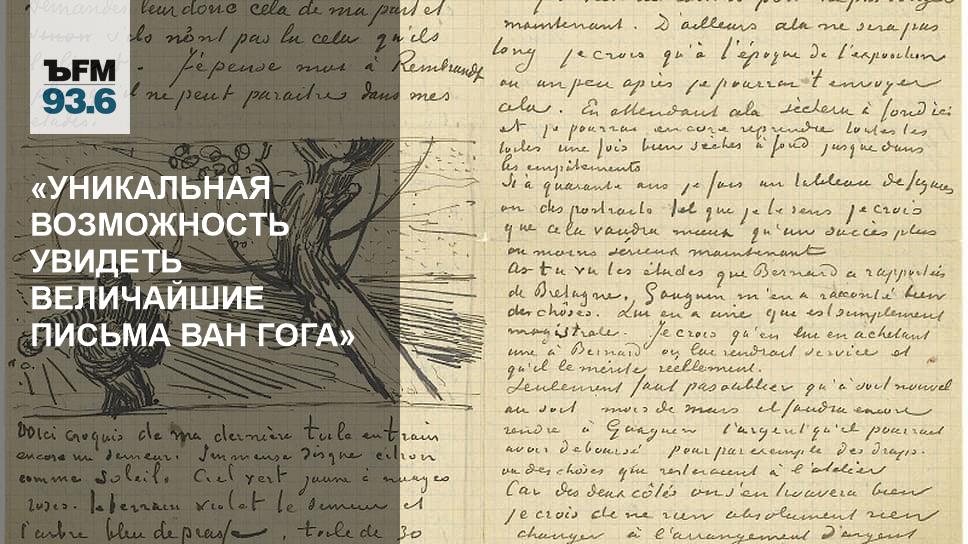 ЪFM
93.6
«УНИКАЛЬНАЯ
ВОЗМОЖНОСТЬ
УВИДЕТЬ
ВЕЛИЧАЙШИЕ
ПИСЬМА ВАН ГОГА»
leur donc cela de ma part et
ils n'ont pas lu cela qu'ils
J'épense mar à Rembrandt
il ne peut paraitre dans mes
études.
Voici croquis de ma dernière toile en train
encore un semeur. Immense disque citron
comme soleil. Ciel vert jaune à nuages
roses. le terrain violet le semeur et
l'arbre bleu de prusse. toile de 30
maintenant. D'ailleurs cela ne sera pas
long je crois qu'à l'époque de l'exposition
ou un peu après je pourrai t'envoyer
cela. En attendant cela sèchera à fond ici
et je pourrai encore reprendre toutes les
toiles une fois bien sèches à fond jusque dans
les empâtements
Si à quarante ans je fais un tableau de figures
ou des portraits tel que je le sens je crois
que cela vaudra mieux qu'un succès plus
ou moins sérieux maintenant
As tu vu les études que Bernard a rapportées
de Bretagne. Gauguin m'en a raconté bien
des choses. Lui en a une que est simplement
magistrale. Je crois qu'en lui en achetant
une à Bernard on lui rendrait service et
qu'il le mérite réellement.
Seulement faut pas oublier qu'à soit nouvel
an soit mois de mars il faudra encore
rendre à Gauguin l'argent qu'il pourrait
avoir déboursé pour par exemple des draps.
ou des choses que resteraient à l'atelier
Car des deux côtés on s'en trouvera bien
je crois de ne rien absolument rien
changer à l'arrangement d'argent